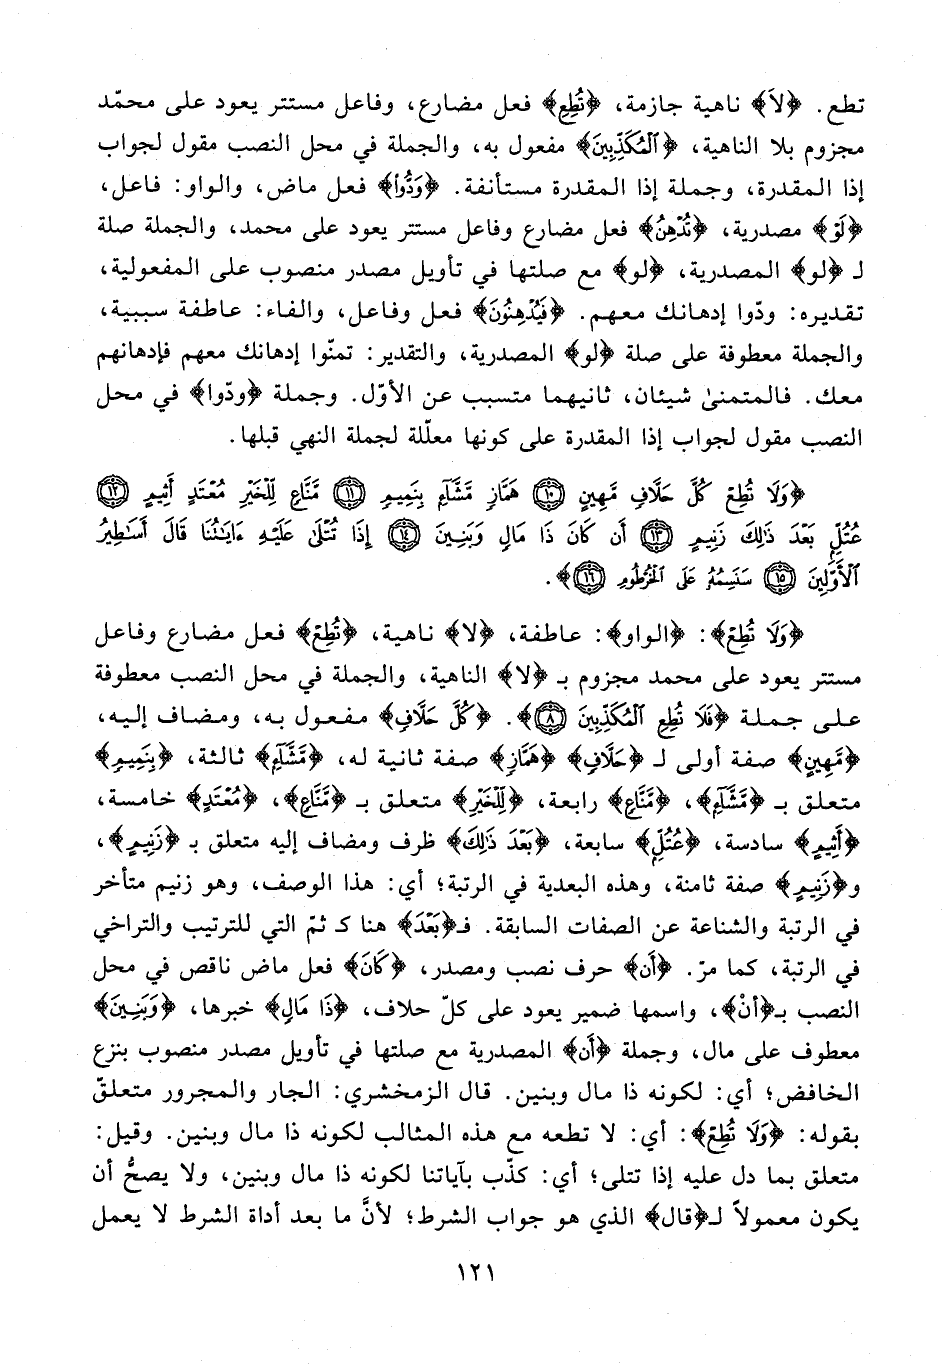 تطع. ﴿لاَ﴾ ناهية جازمة، ﴿تُطِعِ﴾ فعل مضارع، وفاعل مستتر يعود على محمّد
مجزوم بلا الناهية، ﴿ٱلْمُكَذِّبِينَ﴾ مفعول به، والجملة في محل النصب مقول لجواب
إذا المقدرة، وجملة إذا المقدرة مستأنفة. ﴿وَدُّوا۟﴾ فعل ماض، والواو: فاعل،
﴿لَوْ﴾ مصدرية، ﴿تُدْهِنُ﴾ فعل مضارع وفاعل مستتر يعود على محمد، والجملة صلة
لـ ﴿لو﴾ المصدرية، ﴿لو﴾ مع صلتها في تأويل مصدر منصوب على المفعولية،
تقديره: ودّوا إدهانك معهم. ﴿فَيُدْهِنُونَ﴾ فعل وفاعل، والفاء: عاطفة سببية،
والجملة معطوفة على صلة ﴿لو﴾ المصدرية، والتقدير: تمنّوا إدهانك معهم فإدهانهم
معك. فالمتمنىٰ شيئان، ثانيهما متسبب عن الأوّل. وجملة ﴿ودّوا﴾ في محل
النصب مقول لجواب إذا المقدرة على كونها معلّلة لجملة النهي قبلها.
﴿وَلَا تُطِعْ كُلَّ حَلَّافٍ مَّهِينٍ ١٠ هَمَّازٍ مَّشَّآءٍۭ بِنَمِيمٍ ١١ مَّنَّاعٍ لِّلْخَيْرِ مُعْتَدٍ أَثِيمٍ ١٢
عُتُلٍّۭ بَعْدَ ذَٰلِكَ زَنِيمٍ ١٣ أَن كَانَ ذَا مَالٍ وَبَنِينَ ١٤ إِذَا تُتْلَىٰ عَلَيْهِ ءَايَٰتُنَا قَالَ أَسَٰطِيرُ
ٱلْأَوَّلِينَ ١٥ سَنَسِمُهُۥ عَلَى ٱلْخُرْطُومِ ١٦﴾.
﴿وَلَا تُطِعْ﴾: ﴿الواو﴾: عاطفة، ﴿لا﴾ ناهية، ﴿تُطِعْ﴾ فعل مضارع وفاعل
مستتر يعود على محمد مجزوم بـ ﴿لا﴾ الناهية، والجملة في محل النصب معطوفة
على جملة ﴿فَلَا تُطِعِ ٱلْمُكَذِّبِينَ ٨﴾. ﴿كُلَّ حَلَّافٍ﴾ مفعول به، ومضاف إليه،
﴿مَّهِينٍ﴾ صفة أولى لـ ﴿حَلَّافٍ﴾ ﴿هَمَّازٍ﴾ صفة ثانية له، ﴿مَّشَّآءٍۭ﴾ ثالثة، ﴿بِنَمِيمٍ﴾
متعلق بـ ﴿مَّشَّآءٍۭ﴾، ﴿مَّنَّاعٍ﴾ رابعة، ﴿لِّلْخَيْرِ﴾ متعلق بـ ﴿مَّنَّاعٍ﴾، ﴿مُعْتَدٍ﴾ خامسة،
﴿أَثِيمٍ﴾ سادسة، ﴿عُتُلٍّۭ﴾ سابعة، ﴿بَعْدَ ذَٰلِكَ﴾ ظرف ومضاف إليه متعلق بـ ﴿زَنِيمٍ﴾،
و﴿زَنِيمٍ﴾ صفة ثامنة، وهذه البعدية في الرتبة؛ أي: هذا الوصف، وهو زنيم متأخر
في الرتبة والشناعة عن الصفات السابقة. فـ﴿بَعْدَ﴾ هنا كـ ثمّ التي للترتيب والتراخي
في الرتبة، كما مرّ. ﴿أَن﴾ حرف نصب ومصدر، ﴿كَانَ﴾ فعل ماض ناقص في محل
النصب بـ﴿أنْ﴾، واسمها ضمير يعود على كلّ حلاف، ﴿ذَا مَالٍ﴾ خبرها، ﴿وَبَنِينَ﴾
معطوف على مال، وجملة ﴿أَن﴾ المصدرية مع صلتها في تأويل مصدر منصوب بنزع
الخافض؛ أي: لكونه ذا مال وبنين. قال الزمخشري: الجار والمجرور متعلق
بقوله: ﴿وَلَا تُطِعْ﴾: أي: لا تطعه مع هذه المثالب لكونه ذا مال وبنين. وقيل:
متعلق بما دل عليه إذا تتلى؛ أي: كذّب بآياتنا لكونه ذا مال وبنين، ولا يصحُّ أن
يكون معمولاً لـ﴿قال﴾ الذي هو جواب الشرط؛ لأنَّ ما بعد أداة الشرط لا يعمل
١٢١